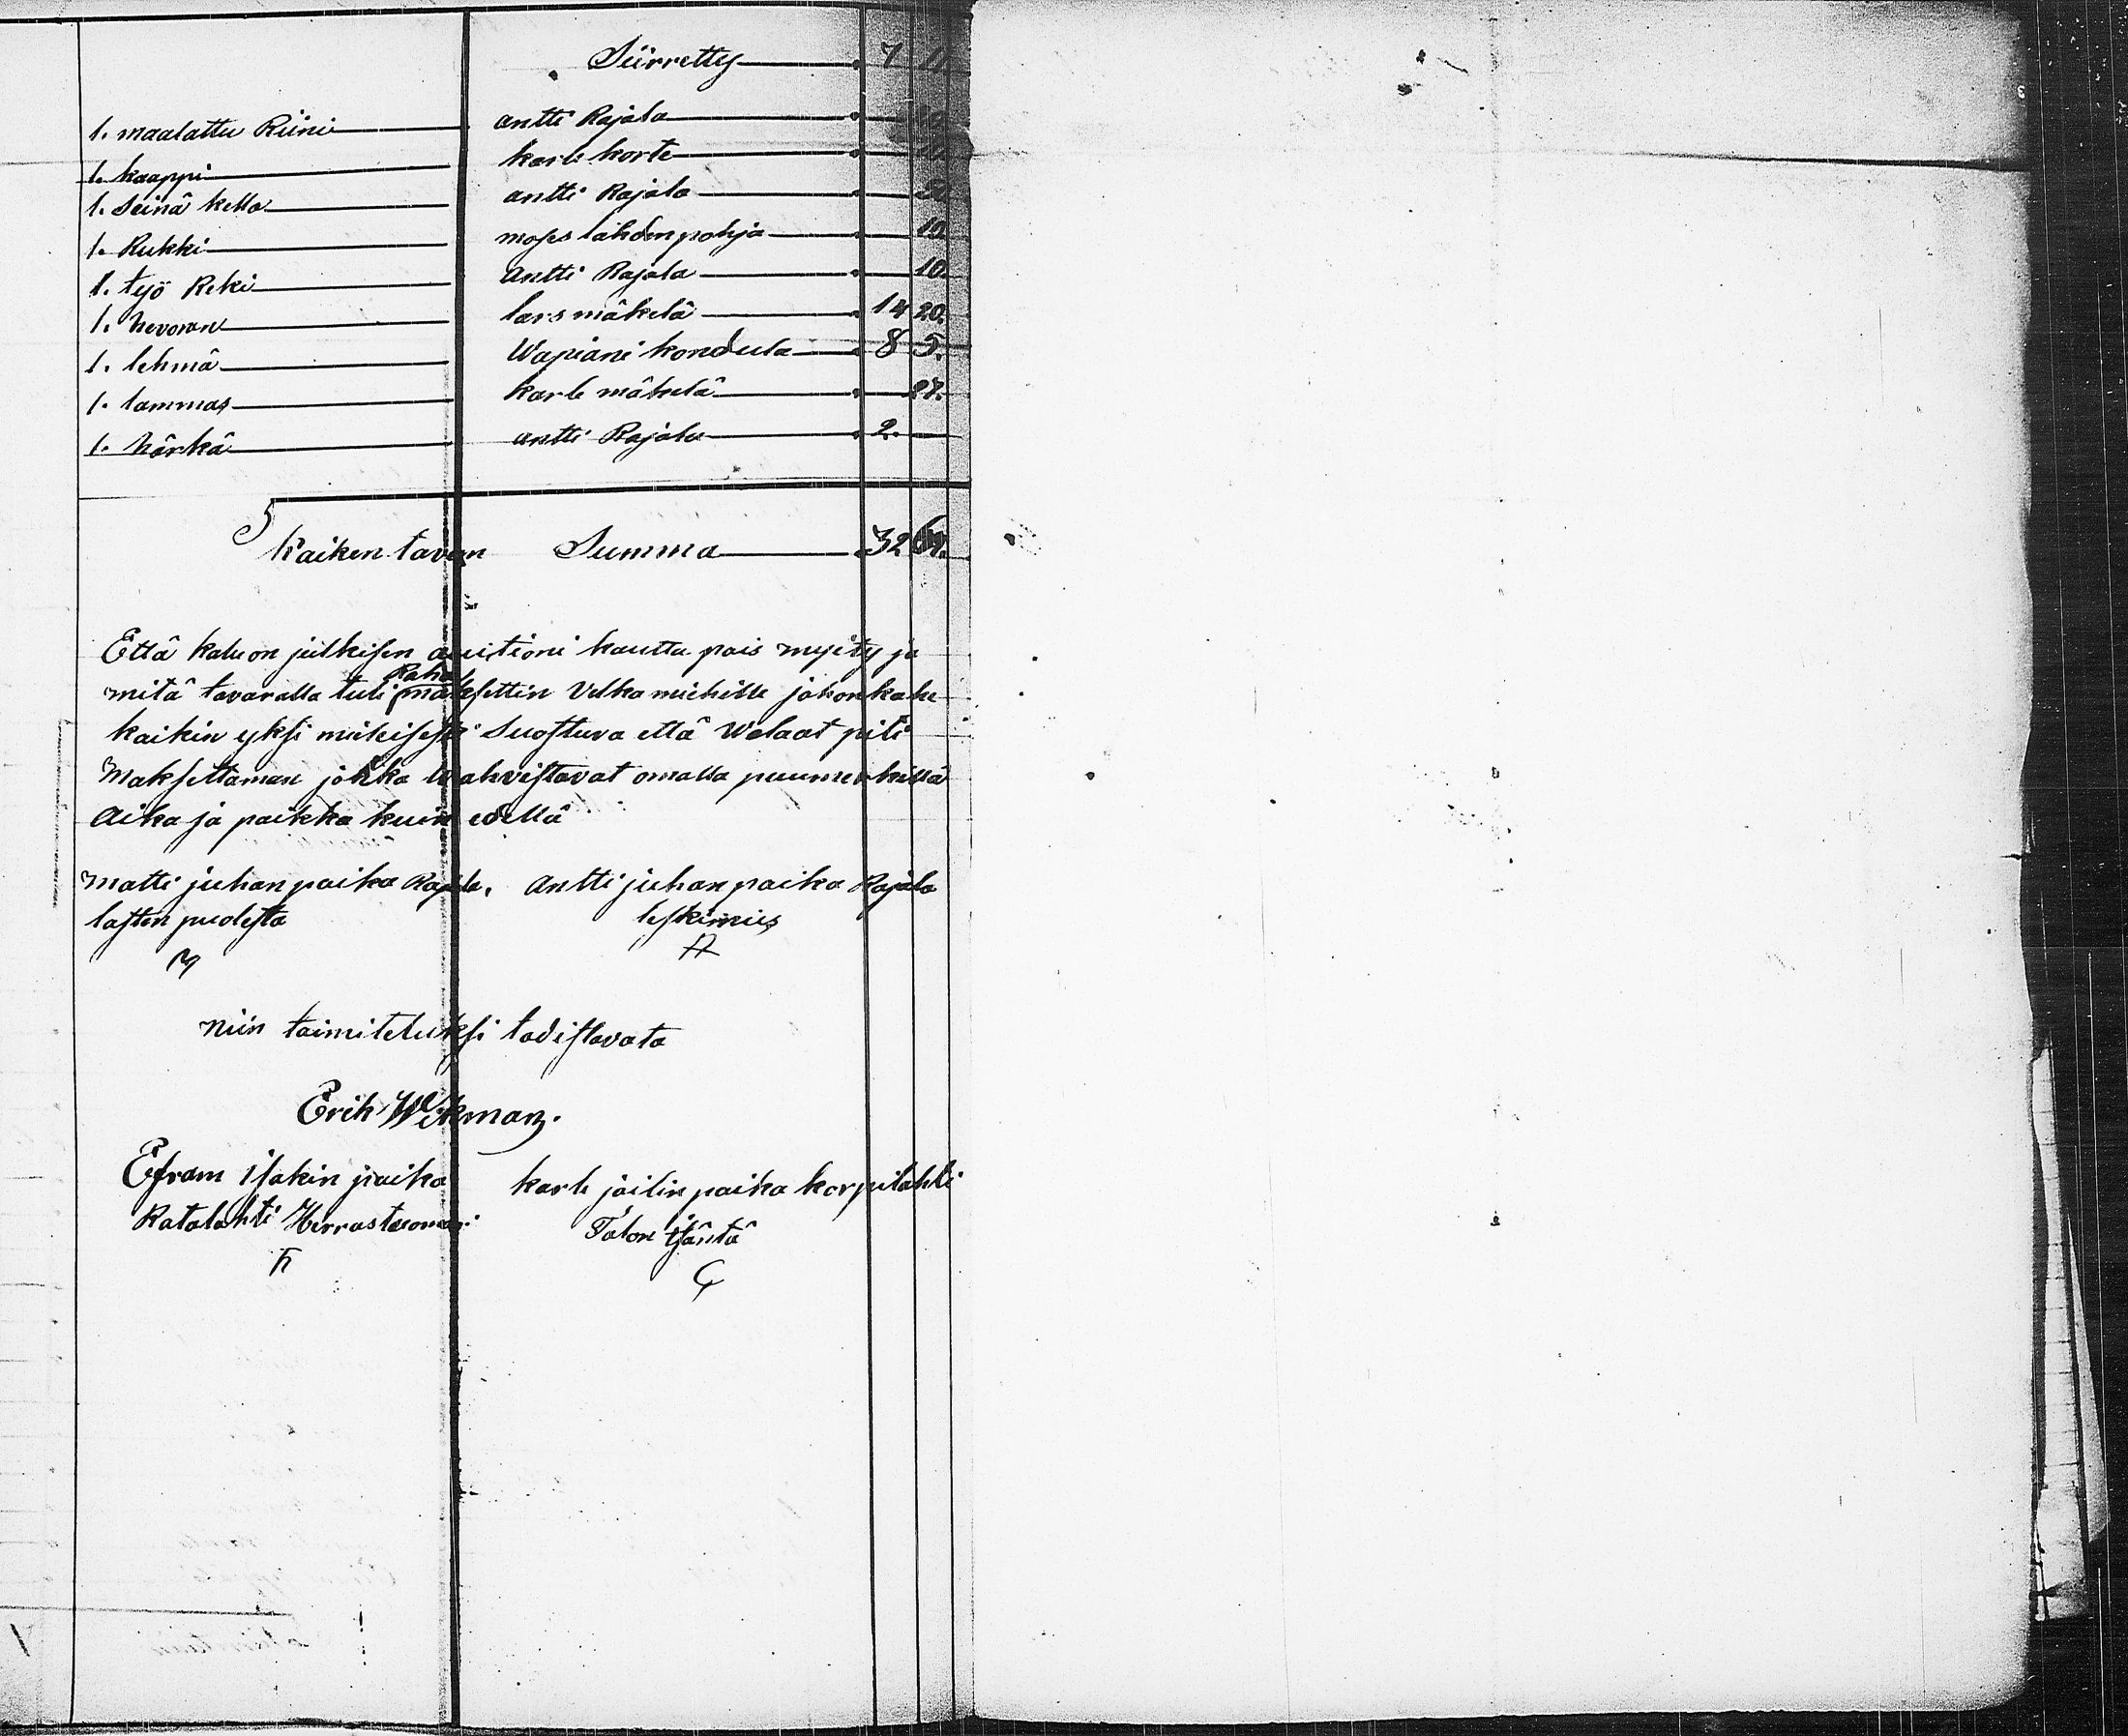 Siirretty 7
1. maalattu Kiini antti Rajala
1. kaappi karle korte
1. Seinä kello antti Rajala
1. Rukki moses lahdenpohja 10.
1. työ Reki antti Rajala 10.
1. hevonen lars mäkelä 14 20.
1. lehmä Wapiani kondula 8 5.
1. lammas karle mäkelä 27.
1. härkä antti Rajala 2.
Kaiken tavaran Summa 32
Että kalu on julkisen auctioni kautta pois myöty ja
Raha
mitä tavaralla tuli maksettin Velka miehille johonka he
kaikin yksi mielisesti Suostuva että Welaat piti
Maksettaman jokka Wahvistavat omalla puumerkillä
Aika ja paikka kuin edellä
Matti juhan poika Rajala, Antti juhan poika Rajala
lasten puolesta leskimies
niin toimiteluksi todistavata
Erik Wikman.
Efram isakin poika karle joilin poika korpilahti
Katalahti Herrastuomari Talon isäntä